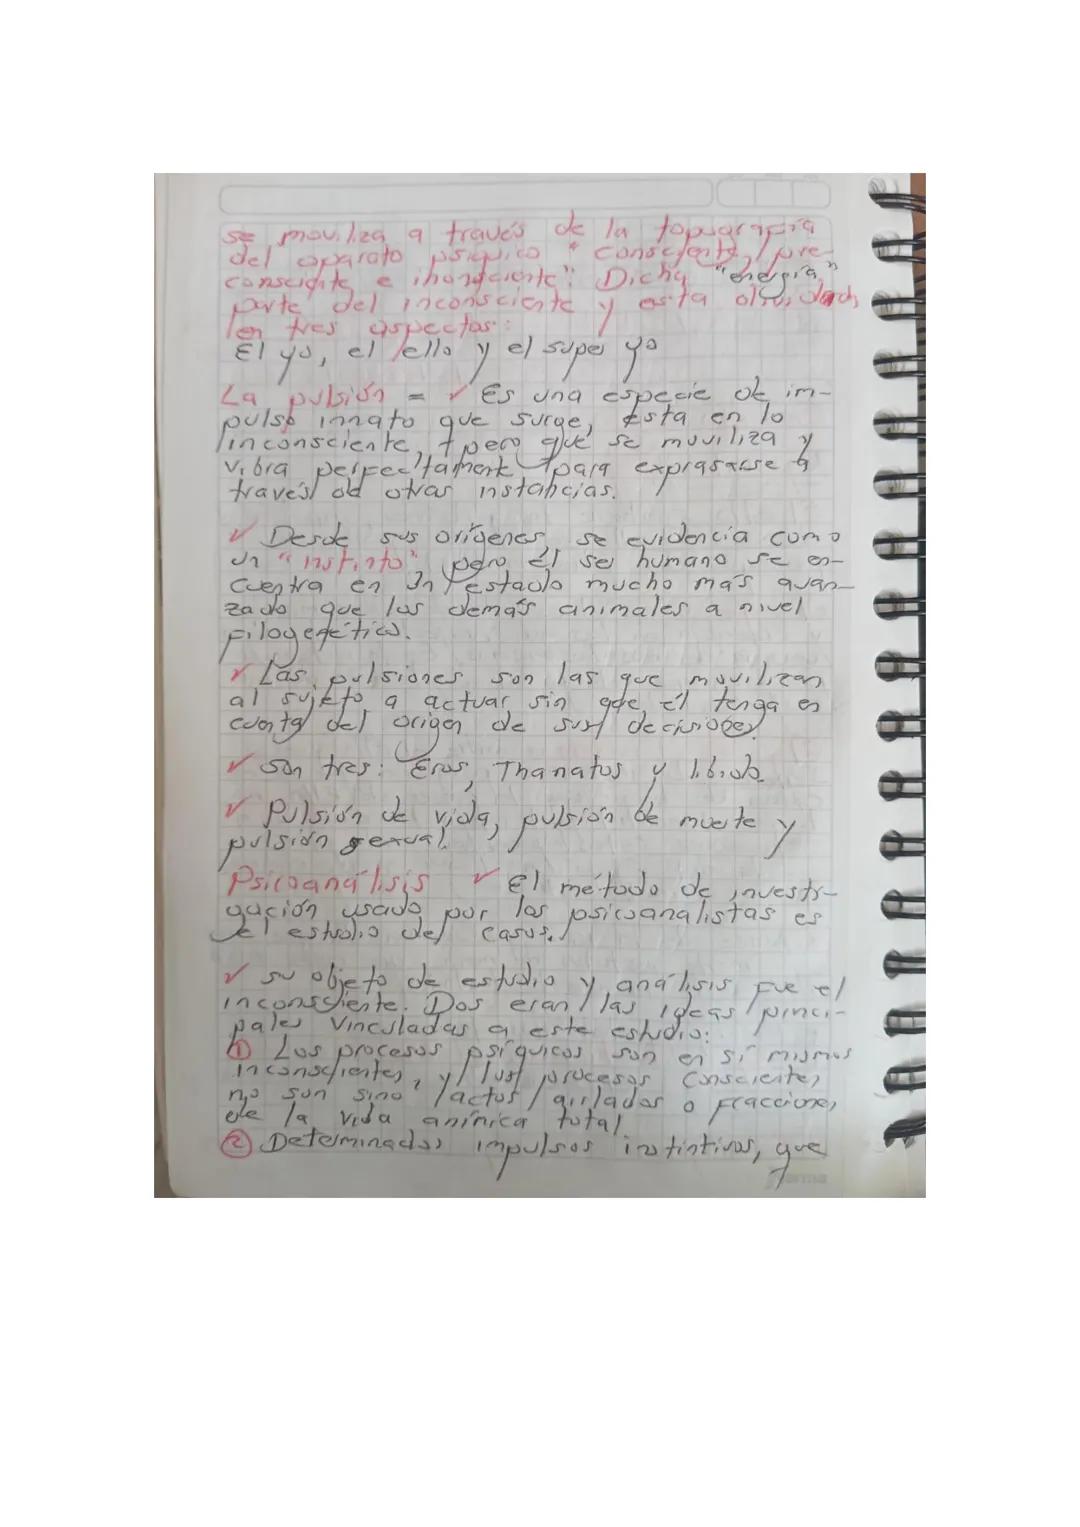 se moviliza a través de la topografía
del aparato psíquico "consciente, pre-
consciente e inconsciente". Dicha "energía"
parte del inconsciente y esta
en tres aspectos:
El yo, el ello y el super yo
La pulsión = ✓ Es una especie de im-
pulso innato que surge, esta en lo
inconsciente, pero que se moviliza y
vibra perfectamente para expresarse a
través de otras instancias.
✓ Desde sus orígenes se evidencia como
un "instinto", pero él ser humano se en-
cuentra en un estado mucho más avan-
zado que los demás animales a nivel
filogenético.
✓ Las pulsiones son las que movilizan
al sujeto a actuar sin que él tenga en
cuenta del origen de sus decisiones.
✓ Son tres: Eros, Thanatos y libido.
✓ Pulsión de vida, pulsión de muerte y
pulsión sexual.
Psicoanálisis ✓ El método de investi-
gación usado por los psicoanalistas es
el estudio de casos.
✓ su objeto de estudio y análisis fue el
inconsciente. Dos eran las ideas princi-
pales vinculadas a este estudio:
① Los procesos psíquicos son en sí mismos
inconscientes, y los procesos conscientes
no son sino actos aislados o fracciones
de la vida anímica total
② Determinados impulsos instintivos, que